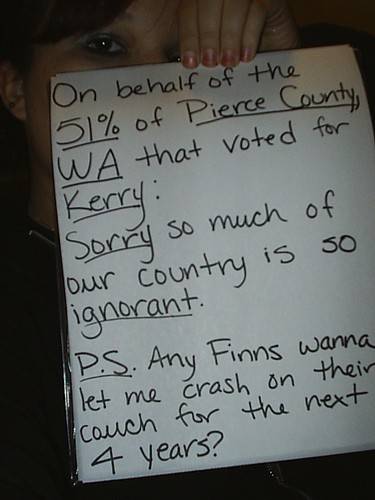 On behalf of the
51% of Pierce County,
WA that voted for
Kerry:
Sorry so much of
our country is so
ignorant.
P.S. Any Finns wanna
let me crash on their
couch for the next
4 years?